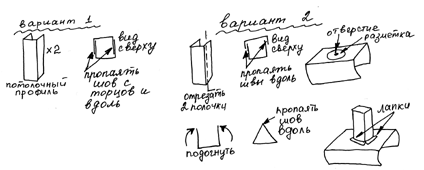 вариант 1
x2
потолочный
профиль
вид
сверху
пропаять
шов с
торцов и
вдоль
вариант 2
отрезать
2 полочки
вид
сверху
пропаять
швы вдоль
отверстие
разметка
подогнуть
пропаять
шов
вдоль
лапки